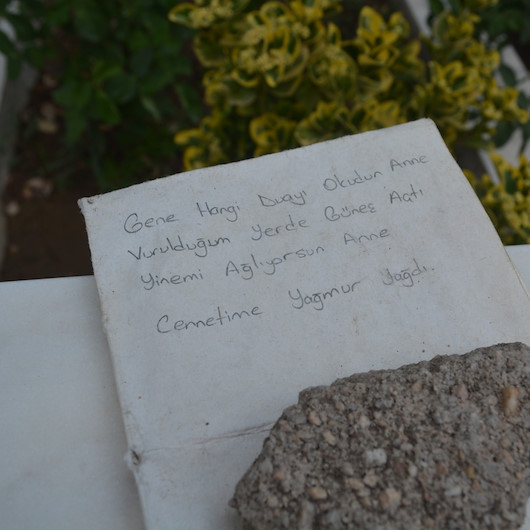 Gene Hangi Duayı Okudun Anne
Vurulduğum Yerde Güneş Açtı
Yinemi Ağlıyorsun Anne
Cennetime Yağmur Yağdı.